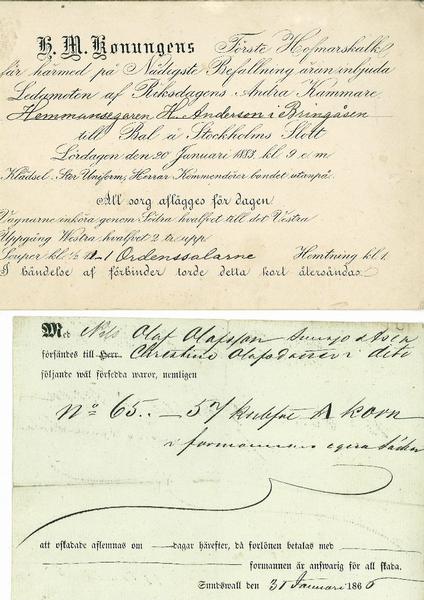 H. M. Konungens Förste Hofmarskalk
får härmed på Nådigste Befallning äran inbjuda
Ledamoten af Riksdagens Andra Kammare,
Hemmansegaren H. Anderson i Bringåsen
till Bal å Stockholms Slott
Lördagen den 20 Januari 1883. kl 9 e m
Klädsel: Stor Uniform, Herrar Kommendörer bandet utanpå.
All sorg aflägges för dagen
Vagnarne inköra genom Södra hvalfvet till det Vestra
Uppgång Westra hvalfvet 2 tr upp.
Souper kl ½ Ordenssalarne Hemtning kl 1.
I händelse af förhinder torde detta kort återsändas.
Med Nils Olof Olofsson
försändes till Herr Christine Olofsdotter i
följande wäl försedda waror, nemligen
No 65.. – 57 korn
i formannens egna
att oskadade aflemnas om dagar härefter, då forlönen betalas med
formannen är answarig för all skada.
Sundswall den 31 Januari 1866